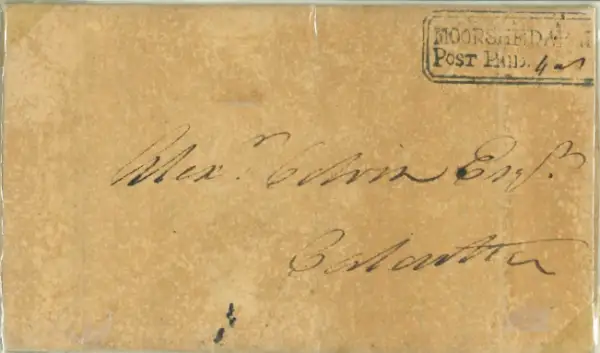 MOORSHEDABAD
POST PAID. 4 as
Alexr. Colvin Esqr.
Calcutta